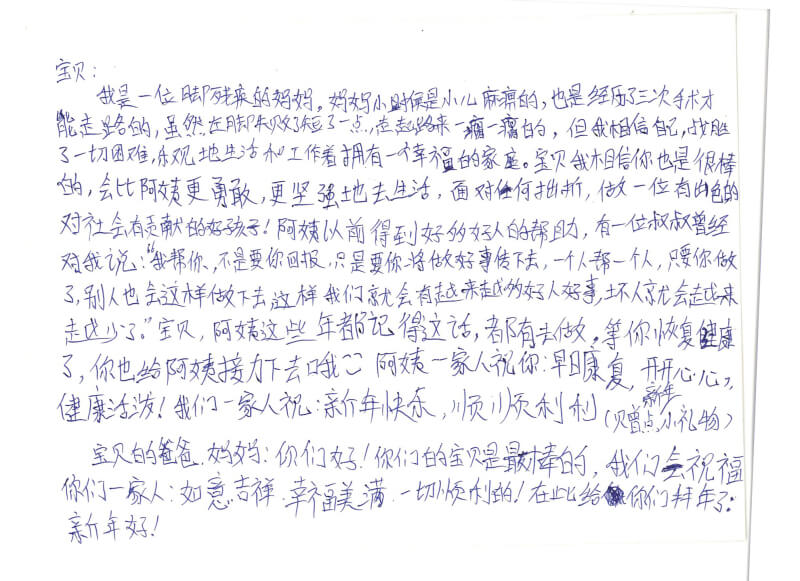 宝贝:
我是一位脚残疾的妈妈。妈妈小时候是小儿麻痹的,也是经历了三次手术才
能走路的,虽然左脚短了一点,走起路来一瘸一瘸的,但我相信自己,战胜
了一切困难,乐观地生活和工作着拥有一个幸福的家庭。宝贝我相信你也是很棒
的,会比阿姨更勇敢,更坚强地去生活,面对任何挫折,做一位有出色的
对社会有贡献的好孩子!阿姨以前得到好多好人的帮助,有一位叔叔曾经
对我说:“我帮你,不是要你回报,只是要你将做好事传下去,一个人帮一个人,只要你做
了,别人也会这样做下去这样我们就会有越来越多好人好事,坏人就会越来
越少了。”宝贝,阿姨这些年都记得这话,都有去做。等你恢复健康
了,你也给阿姨接力下去哦~~阿姨一家人祝你:早日康复,开开心心,
健康活泼!我们一家人祝:新年快乐,顺顺利利(贝曾点新年小礼物)
宝贝的爸爸、妈妈:你们好!你们的宝贝是最棒的,我们会祝福
你们一家人:如意吉祥、幸福美满、一切顺利的!在此给你们拜年了:
新年好!